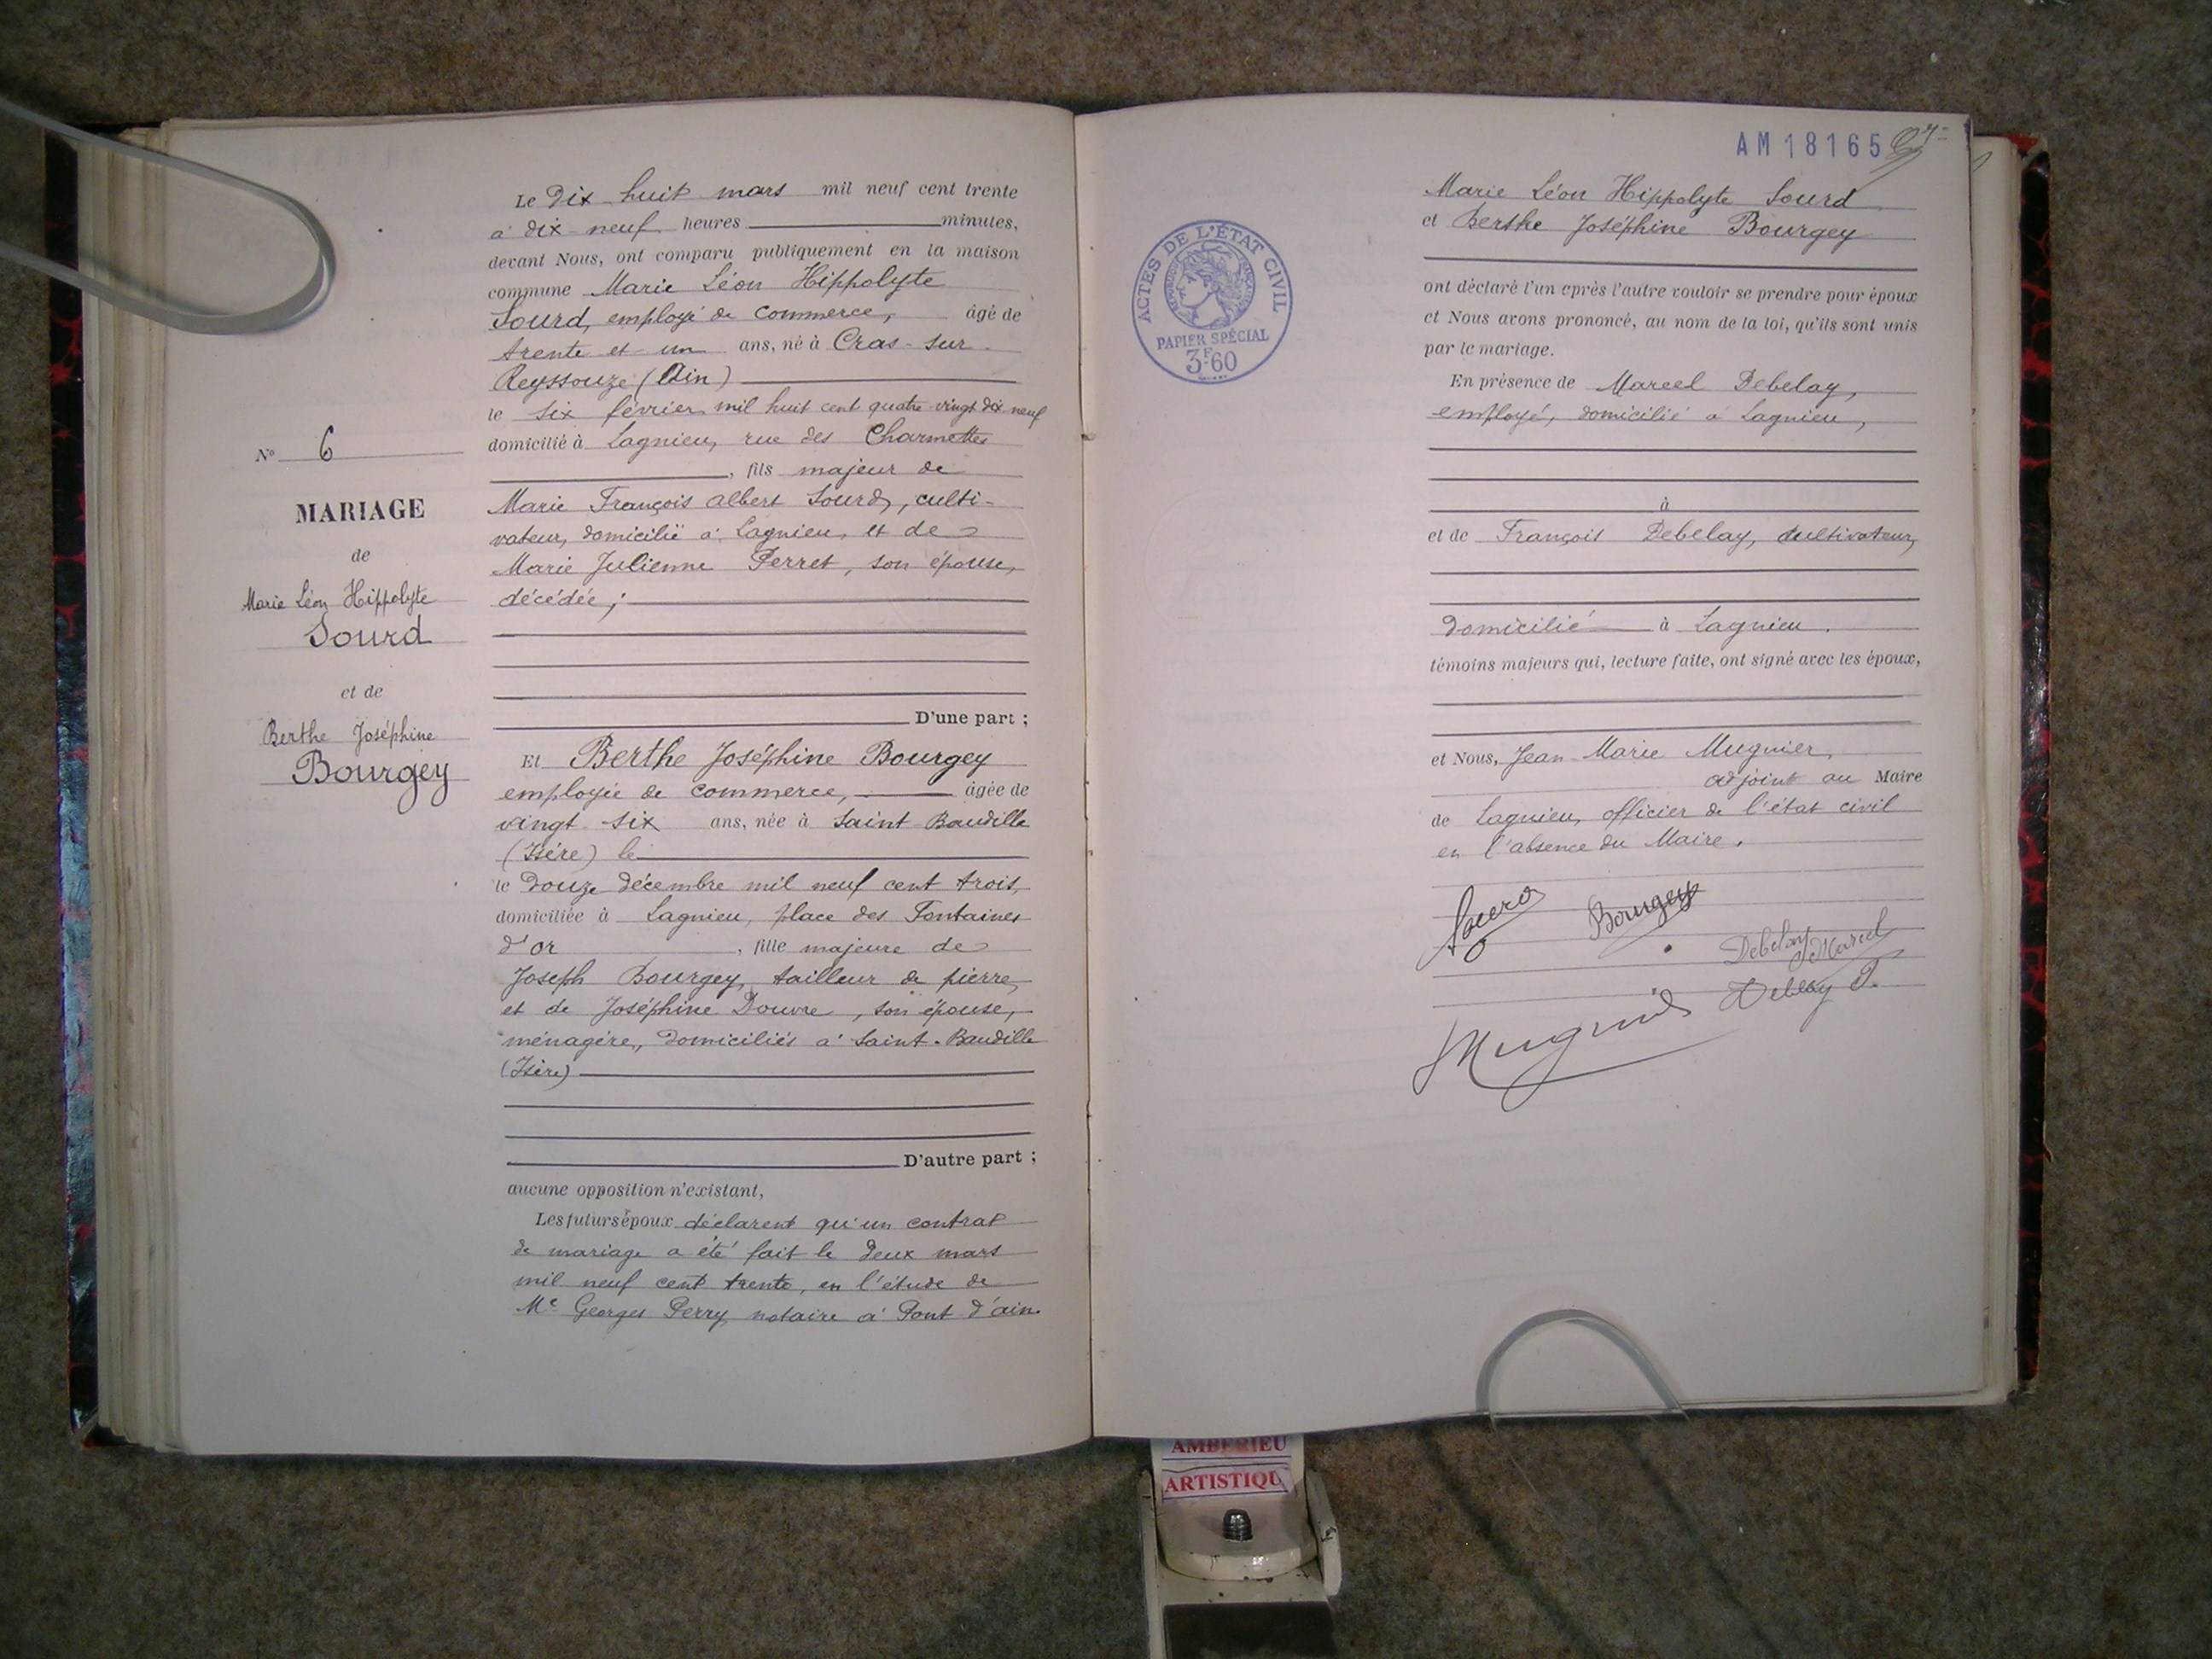 N° 6
MARIAGE
de
Marie Léon Hippolyte
Sourd
et de
Berthe Joséphine
Bourgey
Le Dix huit mars mil neuf cent trente
à dix-neuf heures minutes,
devant Nous, ont comparu publiquement en la maison
commune Marie Léon Hippolyte
Sourd, employé de commerce, âgé de
trente et un ans, né à Cras-sur-
Reyssouze (Ain)
le six février mil huit cent quatre-vingt dix neuf
domicilié à Lagnieu, rue des Charmettes
, fils majeur de
Marie François Albert Sourd, culti-
vateur, domicilié à Lagnieu, et de
Marie Julienne Perret, son épouse,
décédée;
D'une part ;
Et Berthe Joséphine Bourgey
employée de commerce, âgée de
vingt-six ans, née à Saint Baudille
(Isère) le
le Douze décembre mil neuf cent trois,
domiciliée à Lagnieu, place des Fontaines
d'or , fille majeure de
Joseph Bourgey, tailleur de pierre,
et de Joséphine Douvre, son épouse,
ménagère, domiciliés à Saint-Baudille
(Isère)
D'autre part ;
aucune opposition n'existant,
Les futurs époux déclarent qu'un contrat
de mariage a été fait le deux mars
mil neuf cent trente, en l'étude de
Me Georges Perry, notaire à Pont d'ain.
AM 18165
ACTES DE L'ÉTAT CIVIL
RÉPUBLIQUE FRANÇAISE
PAPIER SPÉCIAL
3F.60
Marie Léon Hippolyte Sourd
et Berthe Joséphine Bourgey
ont déclaré l'un après l'autre vouloir se prendre pour époux
et Nous avons prononcé, au nom de la loi, qu'ils sont unis
par le mariage.
En présence de Marcel Debelay,
employé, domicilié à Lagnieu,
à
et de François Debelay, cultivateur,
domicilié à Lagnieu.
témoins majeurs qui, lecture faite, ont signé avec les époux,
et Nous, Jean-Marie Mugnier,
adjoint au Maire
de Lagnieu, officier de l'état civil
en l'absence du Maire.
Sourd
Bourgey
Debelay Marcel
Debelay
Mugnier
AMBERIEU
ARTISTIQU